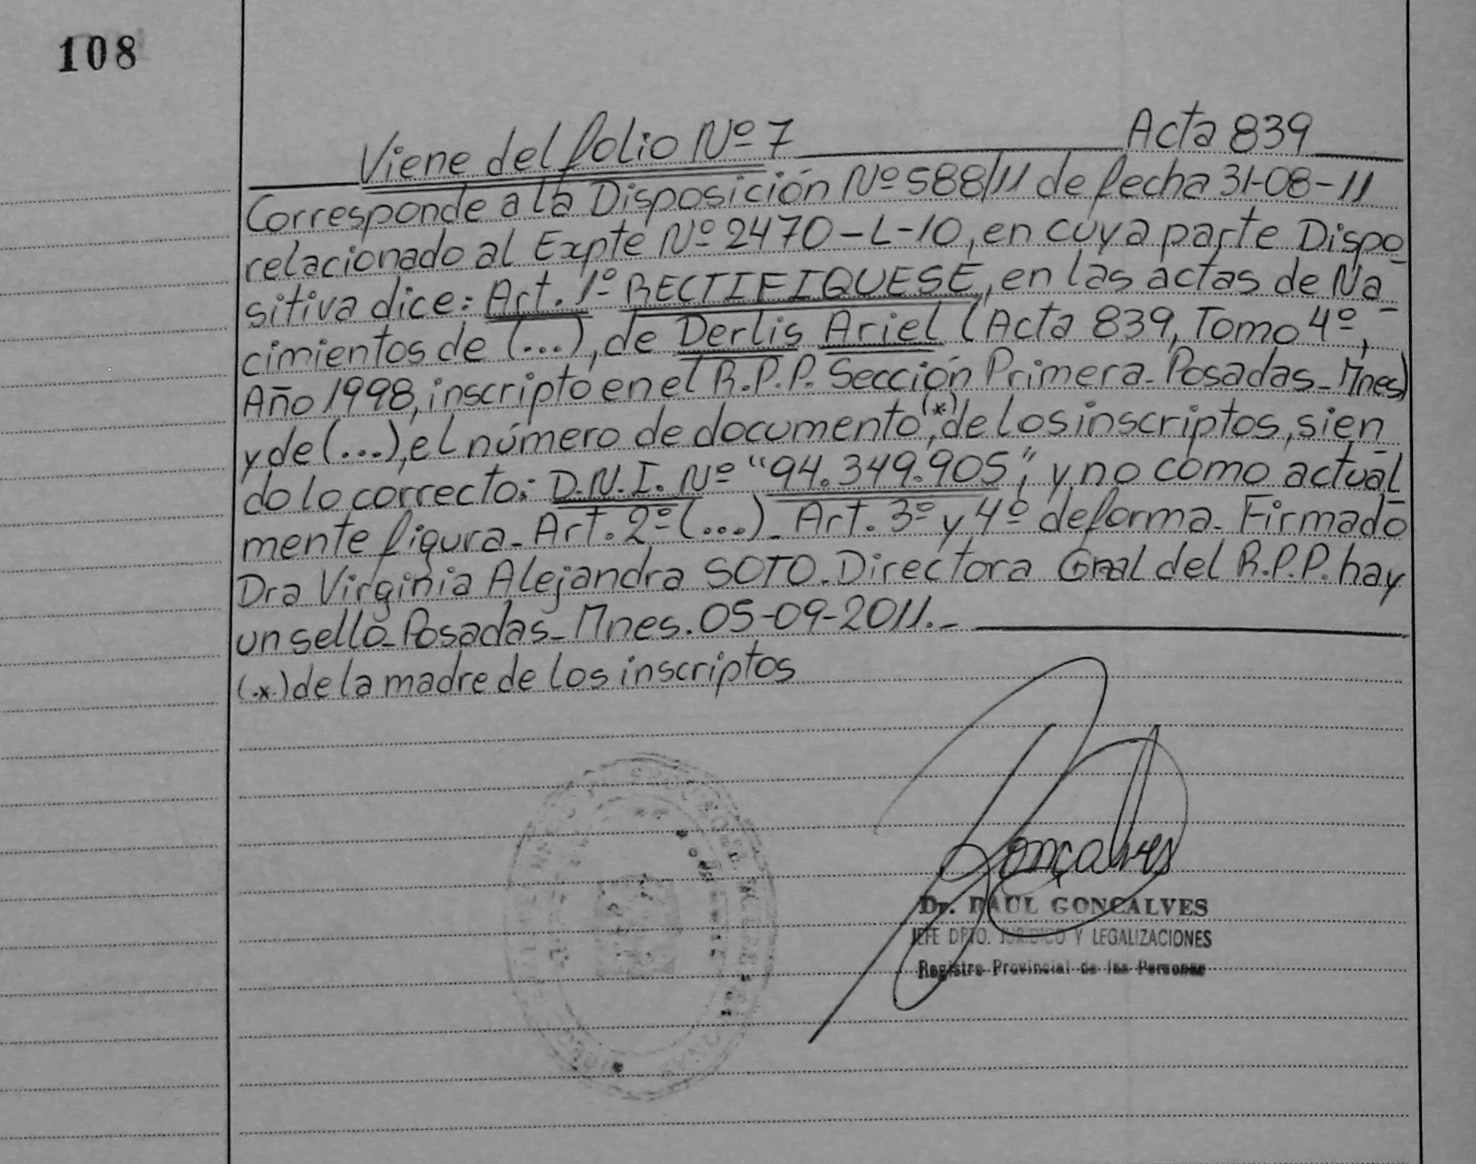 108
Viene del folio Nº 7 Acta 839
Corresponde a la Disposición Nº 588/11 de fecha 31-08-11
relacionado al Expte Nº 2470-L-10, en cuya parte Dispo
sitiva dice: Art. 1º RECTIFIQUESE, en las actas de Na
cimientos de (...), de Derlis Ariel (Acta 839, Tomo 4º,
Año 1998, inscripto en el R.P.P. Sección Primera-Posadas-Mnes)
y de (...), el número de documento (*), de los inscriptos, sien
do lo correcto: D.N.I. Nº "94.349.905", y no como actual
mente figura-Art. 2º (...)-Art. 3º y 4º de forma-Firmado
Dra Virginia Alejandra SOTO-Directora Gral del R.P.P. hay
un sello-Posadas-Mnes. 05-09-2011.-
(*) de la madre de los inscriptos
Gonçalves
Dr. RAUL GONCALVES
JEFE DPTO. JURIDICO Y LEGALIZACIONES
Registro Provincial de las Personas